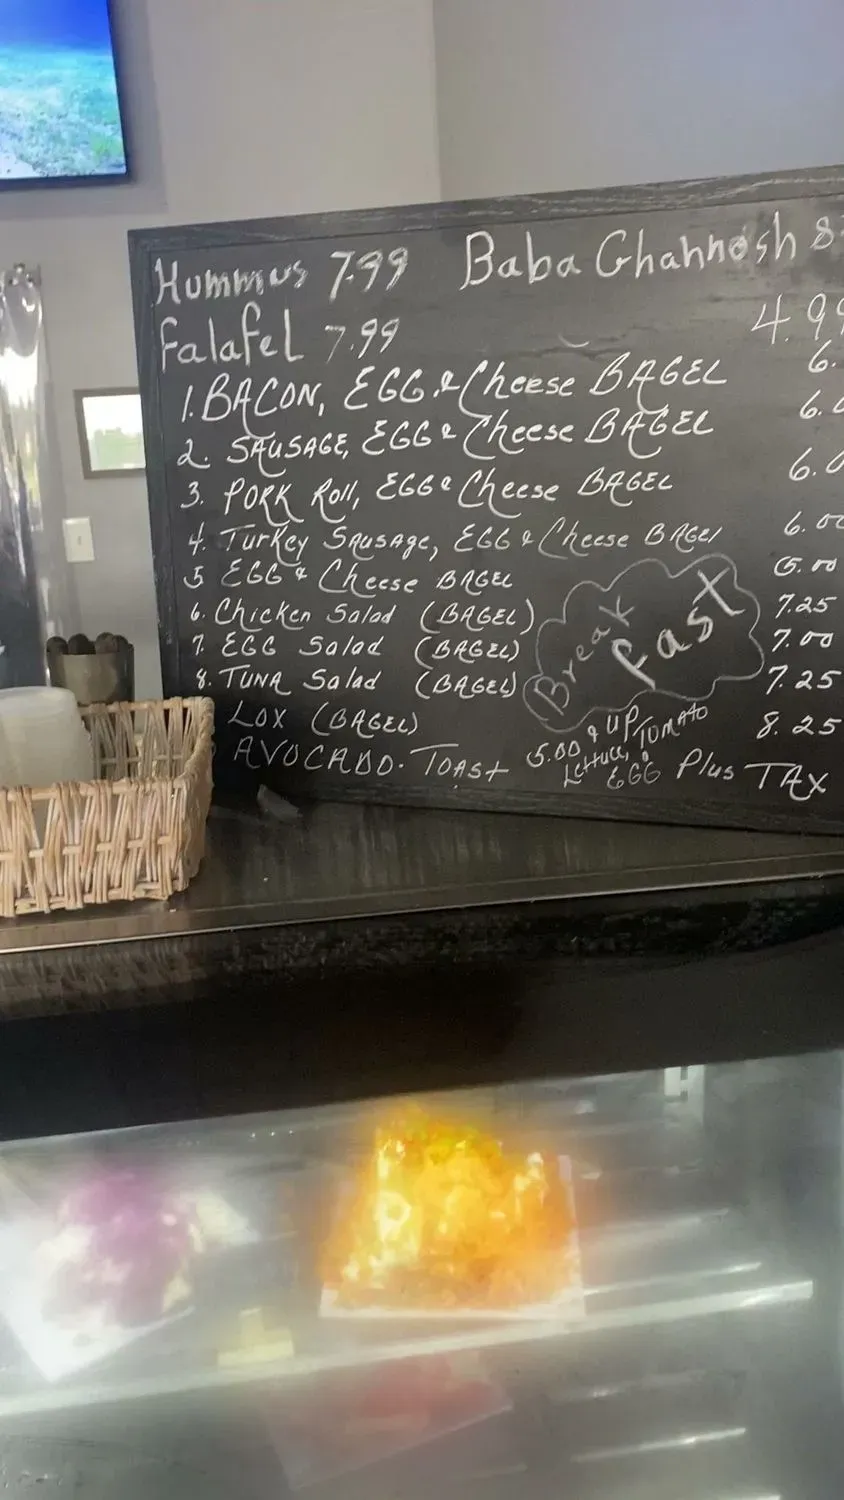 Hummus 7.99 Baba Ghannosh 8
Falafel 7.99 4.99
1. BACON, EGG & Cheese BAGEL 6.
2. SAUSAGE, EGG & Cheese BAGEL 6.0
3. PORK Roll, EGG & Cheese BAGEL 6.0
4. Turkey Sausage, EGG & Cheese BAGEL 6.00
5 EGG & Cheese BAGEL 5.00
6. Chicken Salad (BAGEL) 7.25
7. EGG Salad (BAGEL) 7.00
8. TUNA Salad (BAGEL) 7.25
LOX (BAGEL) 8.25
AVOCADO. TOAST 5.00 & UP
Lettuce, TOMATO
& EGG Plus TAX
Break
fast